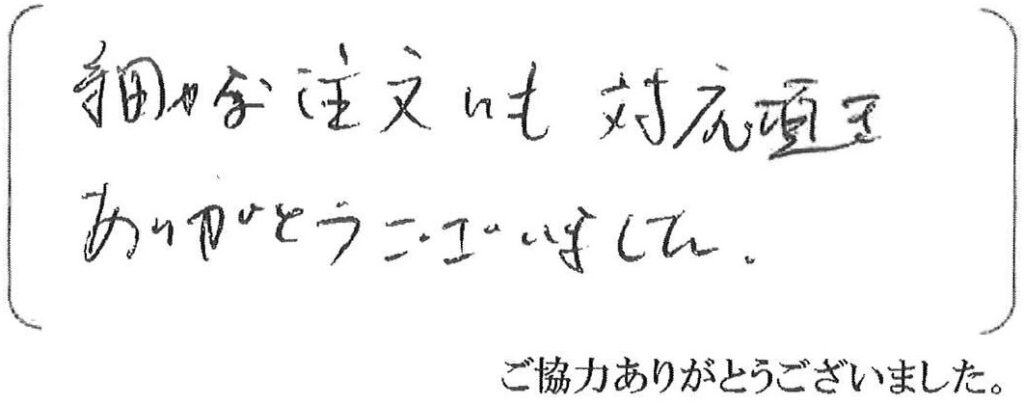 細かな注文にも対応頂き
ありがとうございました.
ご協力ありがとうございました。